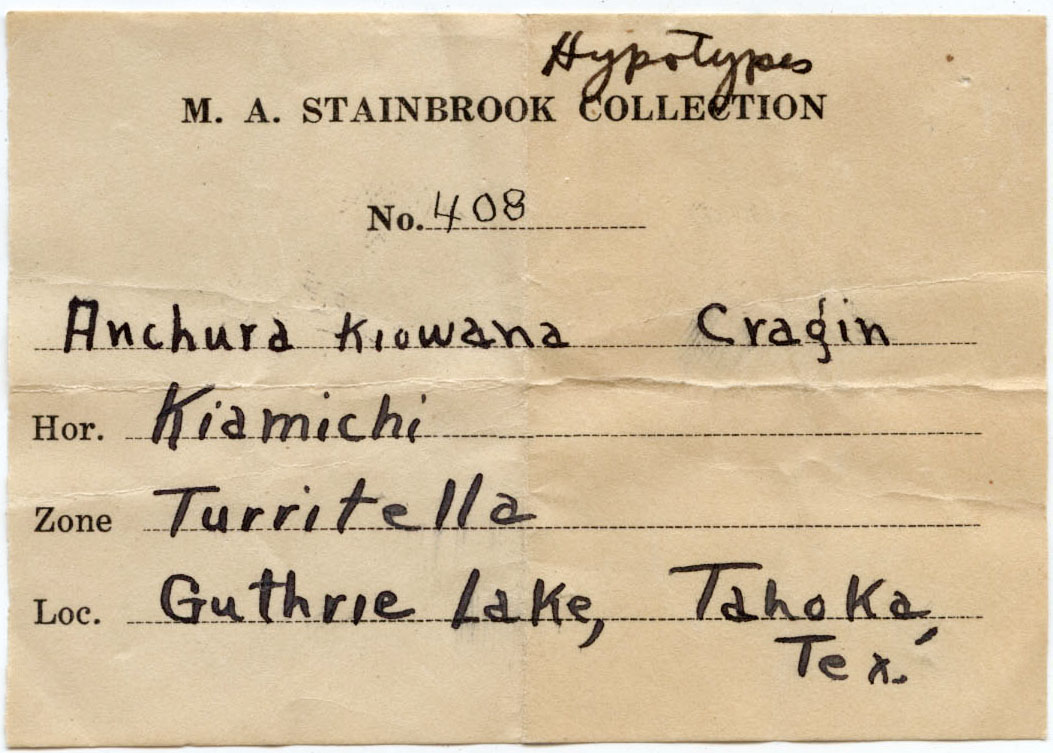 Hypotypes
M. A. STAINBROOK COLLECTION
No. 408
Anchura Kiowana Cragin
Hor. Kiamichi
Zone Turritella
Loc. Guthrie Lake, Tahoka,
Tex.